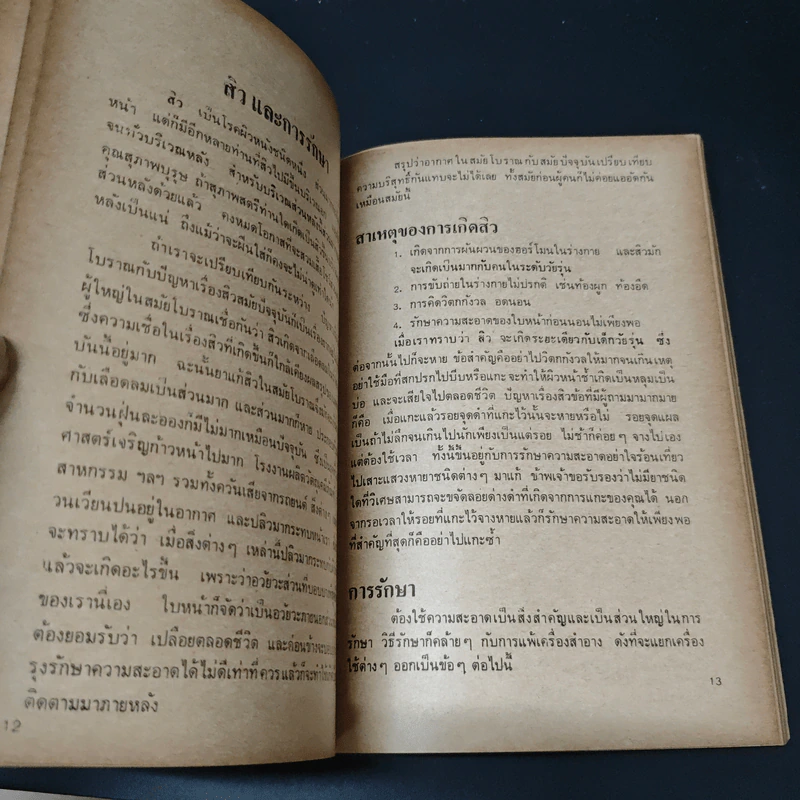 สิว และการรักษา
สิว เป็นโรคผิวหนังชนิดหนึ่ง
หน้า แต่ก็มีอีกหลายท่านที่สิวไปมีขึ้นบริเวณอก
จนทั่วบริเวณหลัง สำหรับบริเวณส่วนหลังสิ
คุณสุภาพบุรุษ ถ้าสุภาพสตรีท่านใดเกิดเป็นสิว
ส่วนหลังด้วยแล้ว คงหมดโอกาสที่จะสวมเสื้อ
หลังเป็นแน่ ถึงแม้ว่าจะฝืนใส่ก็คงจะไม่น่าดู
ถ้าเราจะเปรียบเทียบกันระหว่าง
โบราณกับปัญหาเรื่องสิวสมัยปัจจุบันก็เป็นเรื่อง
ผู้ใหญ่ในสมัยโบราณเชื่อกันว่า สิวเกิดจากเลือด
ซึ่งความเชื่อในเรื่องสิวที่เกิดขึ้นก็ใกล้เคียง
บันนี้อยู่มาก ฉะนั้นยาแก้สิวในสมัยโบราณจึง
กับเลือดลมเป็นส่วนมาก และส่วนมากก็หาย
จำนวนฝุ่นละอองก็มีไม่มากเหมือนปัจจุบัน ซึ่ง
ศาสตร์เจริญก้าวหน้าไปมาก โรงงานผลิตวัตถุ
สาหกรรม ฯลฯ รวมทั้งควันเสียจากรถยนต์ สิ่งต่างๆ
วนเวียนปนอยู่ในอากาศ และปลิวมากระทบหน้า
จะทราบได้ว่า เมื่อสิ่งต่างๆ เหล่านี้ปลิวมากระทบ
แล้วจะเกิดอะไรขึ้น เพราะว่าอวัยวะส่วนที่บอบบาง
ของเรานี่เอง ใบหน้าก็จัดว่าเป็นอวัยวะภายนอก
ต้องยอมรับว่า เปลือยตลอดชีวิต และค่อนข้างจะ
รุงรักษาความสะอาดได้ไม่ดีเท่าที่ควรแล้วก็จะทำให้
ติดตามมาภายหลัง
12
สรุปว่าอากาศในสมัยโบราณกับสมัยปัจจุบันเปรียบเทียบ
ความบริสุทธิ์กันแทบจะไม่ได้เลย ทั้งสมัยก่อนผู้คนก็ไม่ค่อยแออัดกัน
เหมือนสมัยนี้
สาเหตุของการเกิดสิว
1. เกิดจากการผันผวนของฮอร์โมนในร่างกาย และสิวมัก
จะเกิดเป็นมากกับคนในระดับวัยรุ่น
2. การขับถ่ายในร่างกายไม่ปรกติ เช่นท้องผูก ท้องอืด
3. การคิดวิตกกังวล อดนอน
4. รักษาความสะอาดของใบหน้าก่อนนอนไม่เพียงพอ
เมื่อเราทราบว่า สิว จะเกิดระยะเดียวกับเด็กวัยรุ่น ซึ่ง
ต่อจากนั้นไปก็จะหาย ข้อสำคัญคืออย่าไปวิตกกังวลให้มากจนเกินเหตุ
อย่าใช้มือที่สกปรกไปบีบหรือแกะ จะทำให้ผิวหน้าช้ำเกิดเป็นหลุมเป็น
บ่อ และจะเสียใจไปตลอดชีวิต ปัญหาเรื่องสิวข้อที่มีผู้ถามมามากมาย
ก็คือ เมื่อแกะแล้วรอยจุดดำที่แกะไว้นั้นจะหายหรือไม่ รอยจุดแผล
เป็นถ้าไม่ลึกจนเกินไปนักเพียงเป็นแต่รอย ไม่ช้าก็ค่อยๆ จางไปเอง
แต่ต้องใช้เวลา ทั้งนี้ขึ้นอยู่กับการรักษาความสะอาดอย่าใจร้อนเที่ยว
ไปเสาะแสวงหายาชนิดต่างๆ มาแก้ ข้าพเจ้าขอรับรองว่าไม่มียาชนิด
ใดที่วิเศษสามารถจะขจัดลอยด่างดำที่เกิดจากการแกะของคุณได้ นอก
จากรอเวลาให้รอยที่แกะไว้จางหายแล้วก็รักษาความสะอาดให้เพียงพอ
ที่สำคัญที่สุดก็คืออย่าไปแกะซ้ำ
การรักษา
ต้องใช้ความสะอาดเป็นสิ่งสำคัญและเป็นส่วนใหญ่ในการ
รักษา วิธีรักษาก็คล้ายๆ กับการแพ้เครื่องสำอาง ดังที่จะแยกเครื่อง
ใช้ต่างๆ ออกเป็นข้อๆ ต่อไปนี้
13